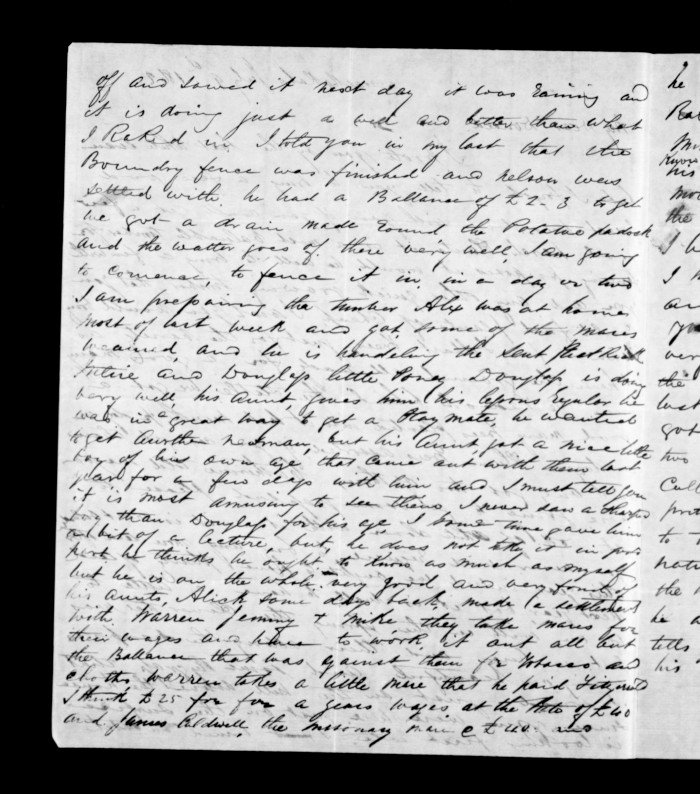 off and sowed it next day it was raining and
it is doing just a well and better than what
I Raked in I told you in my last that the
Boundry fence was finished and Nelson was
settled with, he had a Ballance of £2-3 to get
we got a drain made round the Potatoe padock
and the watter goes of there very well, I am going
to comence to fence it in, in a day or two
I am prepairing the timber Alex was at home
most of last week and got some of the mares
weained, and he is handeling the
Entire and Douglass little Poney Douglass is doing
very well, his Aunt gives him his lessons regular he
was in a great way to get a Playmate, he wanted
to get another but his Aunt got a nice little
boy of his own age that came out with them last
year for a few days with him and I must tell you
it is most amusing to see them I never saw a sharper
boy than Douglass for his age I some time gave him
a bit of a lecture, but, he does not take it in good
part he thinks he ought to know as much as myself
but he is on the whole very good and very fond of
his aunts, Alick some days back, made a settlement
with Warren Jemmy & Mike they take mares for
their wages and have to work it out all but
the Ballance that was against them for tobacco and
cloths Warren takes a little mare that he paid Fitzgerald
I think £25 for for a years wages at the rate of £40
and James Caldwell, the missionary mare @ £40 and
he
Rat
his
mor
the
I
I
are
ver
the
last
got
two
to
the
he
tells
his